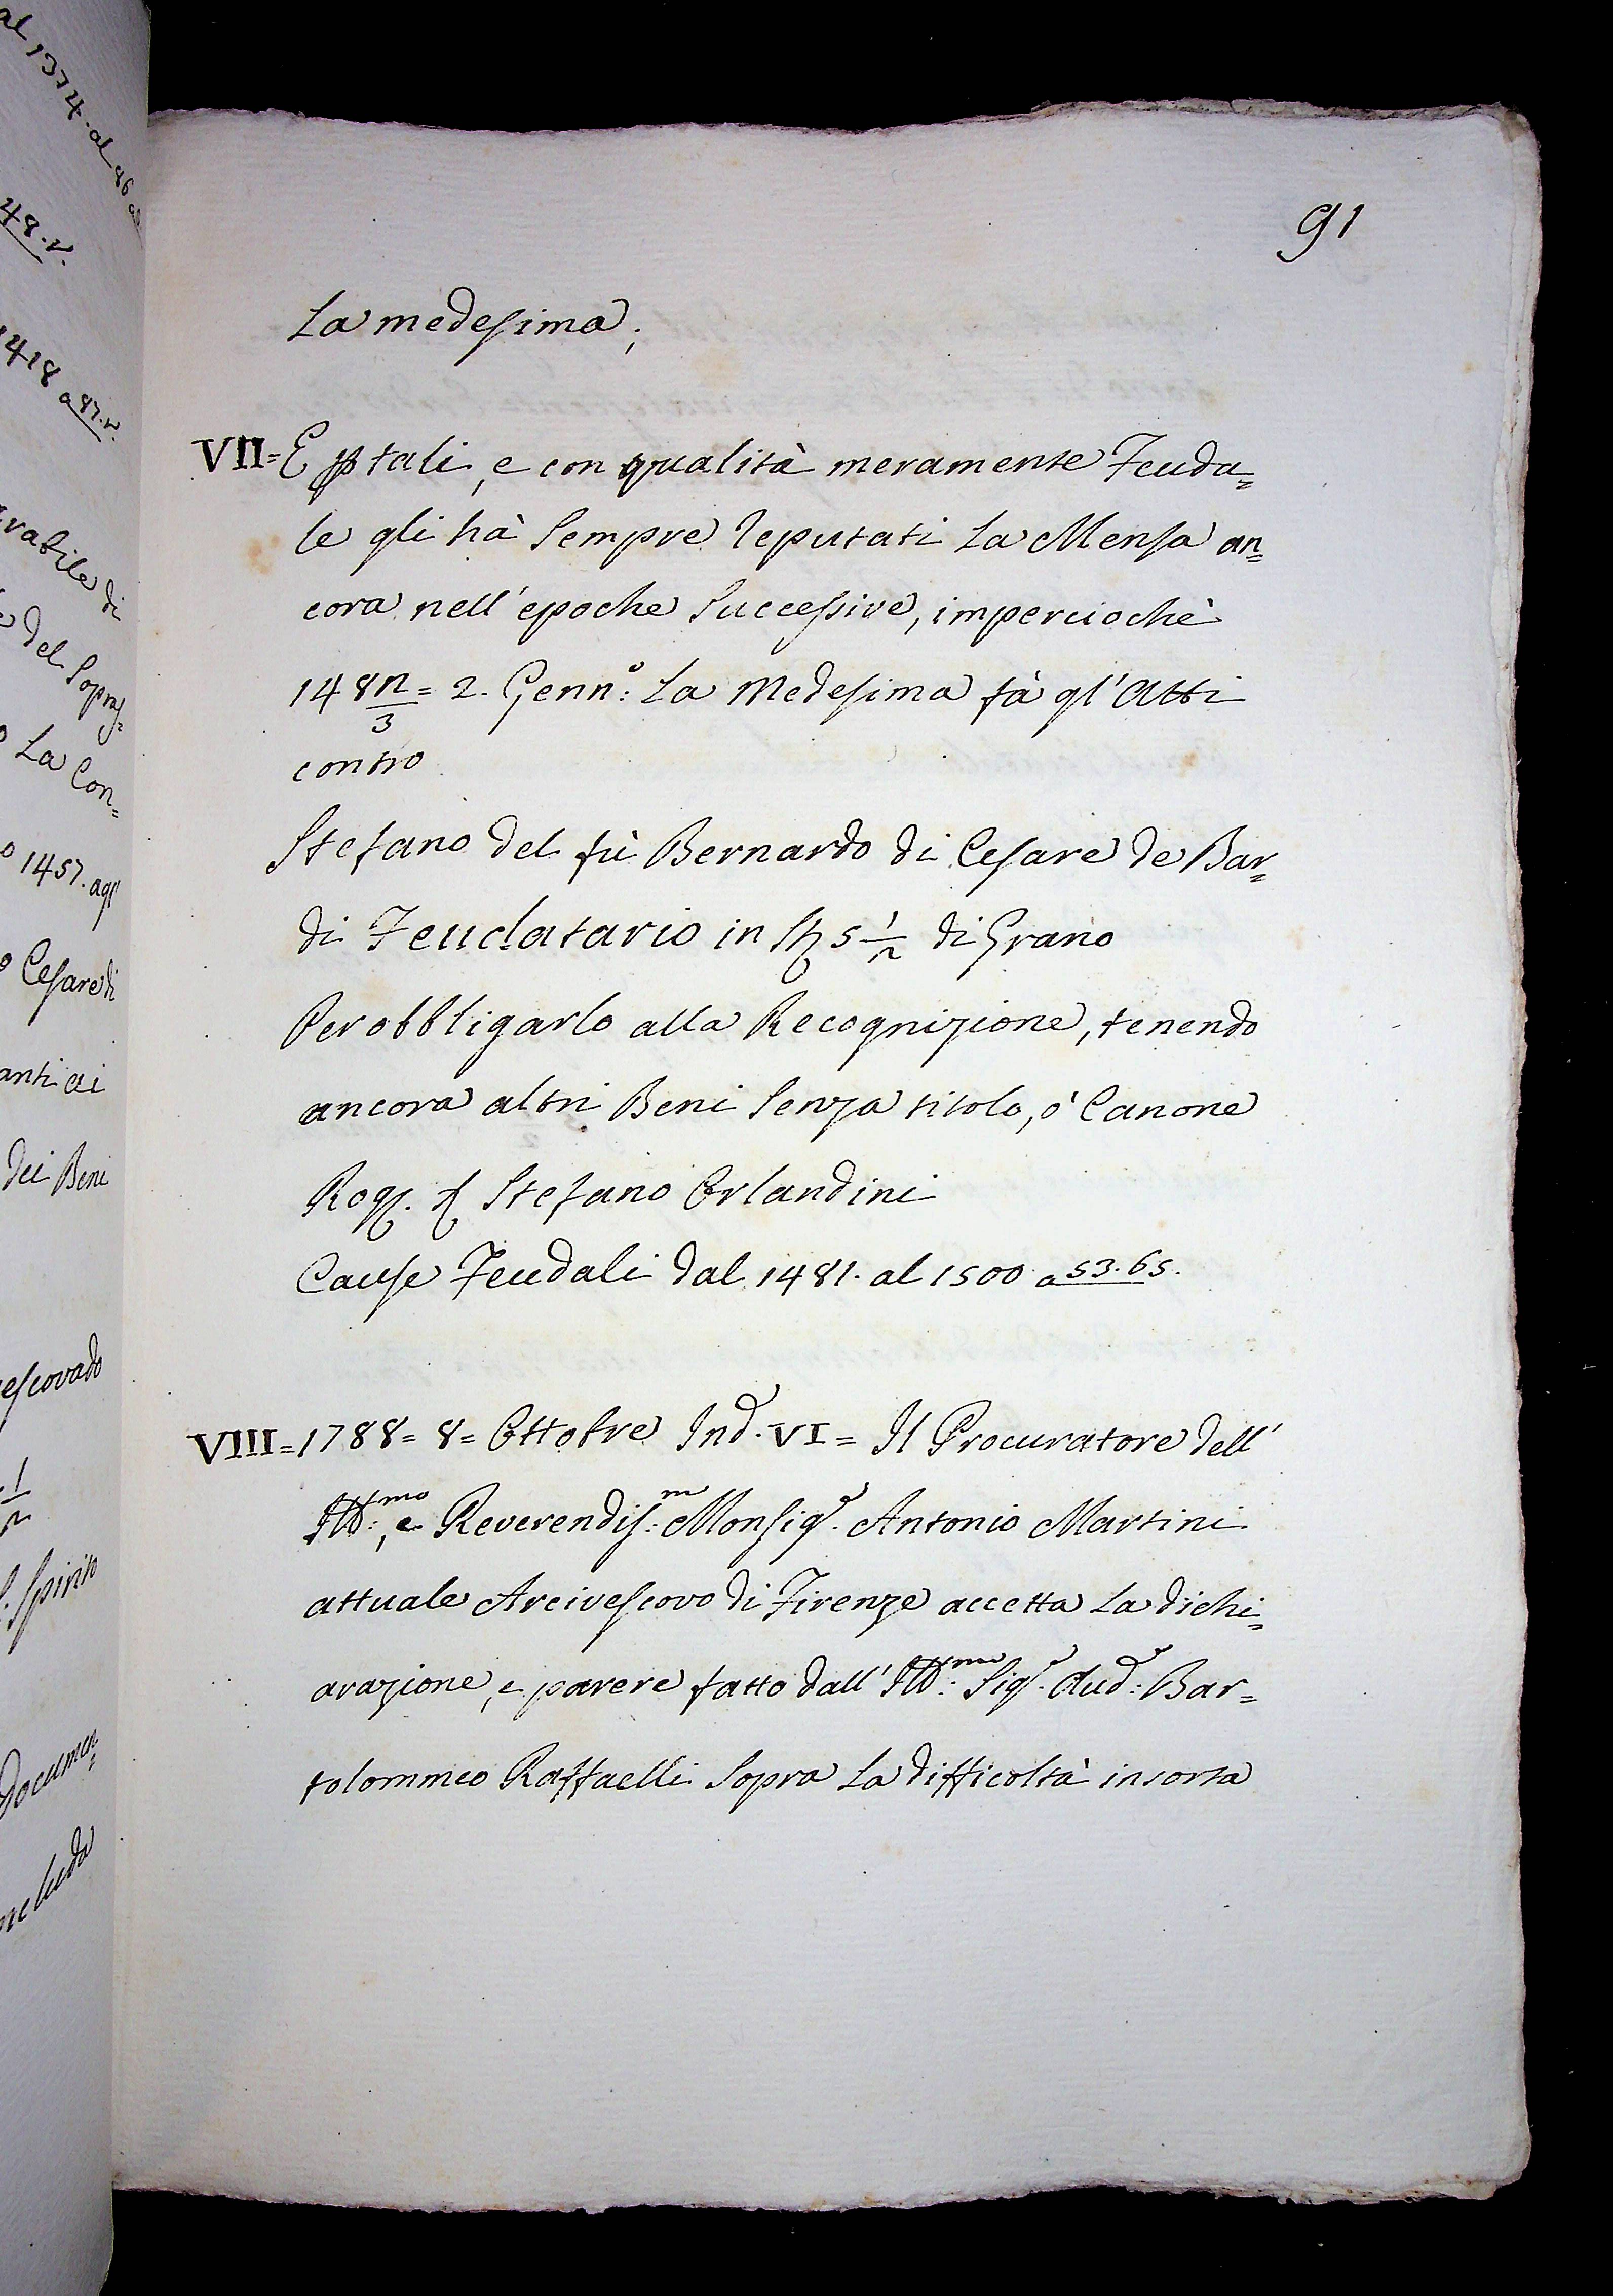 al 1374. al 86
48. v.
1418 a 87. v.
del Sopraj.
La Con=
1457. agl'
Cesare di
anti ai
dei Beni
escovado
1/2
S. Spirito
Documen=
ncluda
91
La medesima;
VII= E p tali, e con qualità meramente Feuda=
le gli hà sempre reputati La Mensa an=
cora nell'epoche Successive, imperciochè
148 2/3 = 2. Genn:o La Medesima fà gl'Atti
contro
Stefano del fù Bernardo di Cesare de Bar=
di Feudatario in St 5 1/2 di Grano
Per obbligarlo alla Recognizione, tenendo
ancora altri Beni Senza titolo, ò Canone
Rog. S. Stefano Orlandini
Cause Feudali dal 1481. al 1500 a 53. 65.
VIII= 1788= 8= Ottobre Ind. VI= Il Procuratore dell'
Ill:mo, e Reverendis:m Monsig.e Antonio Martini
attuale Arcivescovo di Firenze accetta La dichi=
arazione, e parere fatto dall'Ill:mo Sig.e Aud:e Bar=
tolommeo Raffaelli Sopra La difficoltà insorta